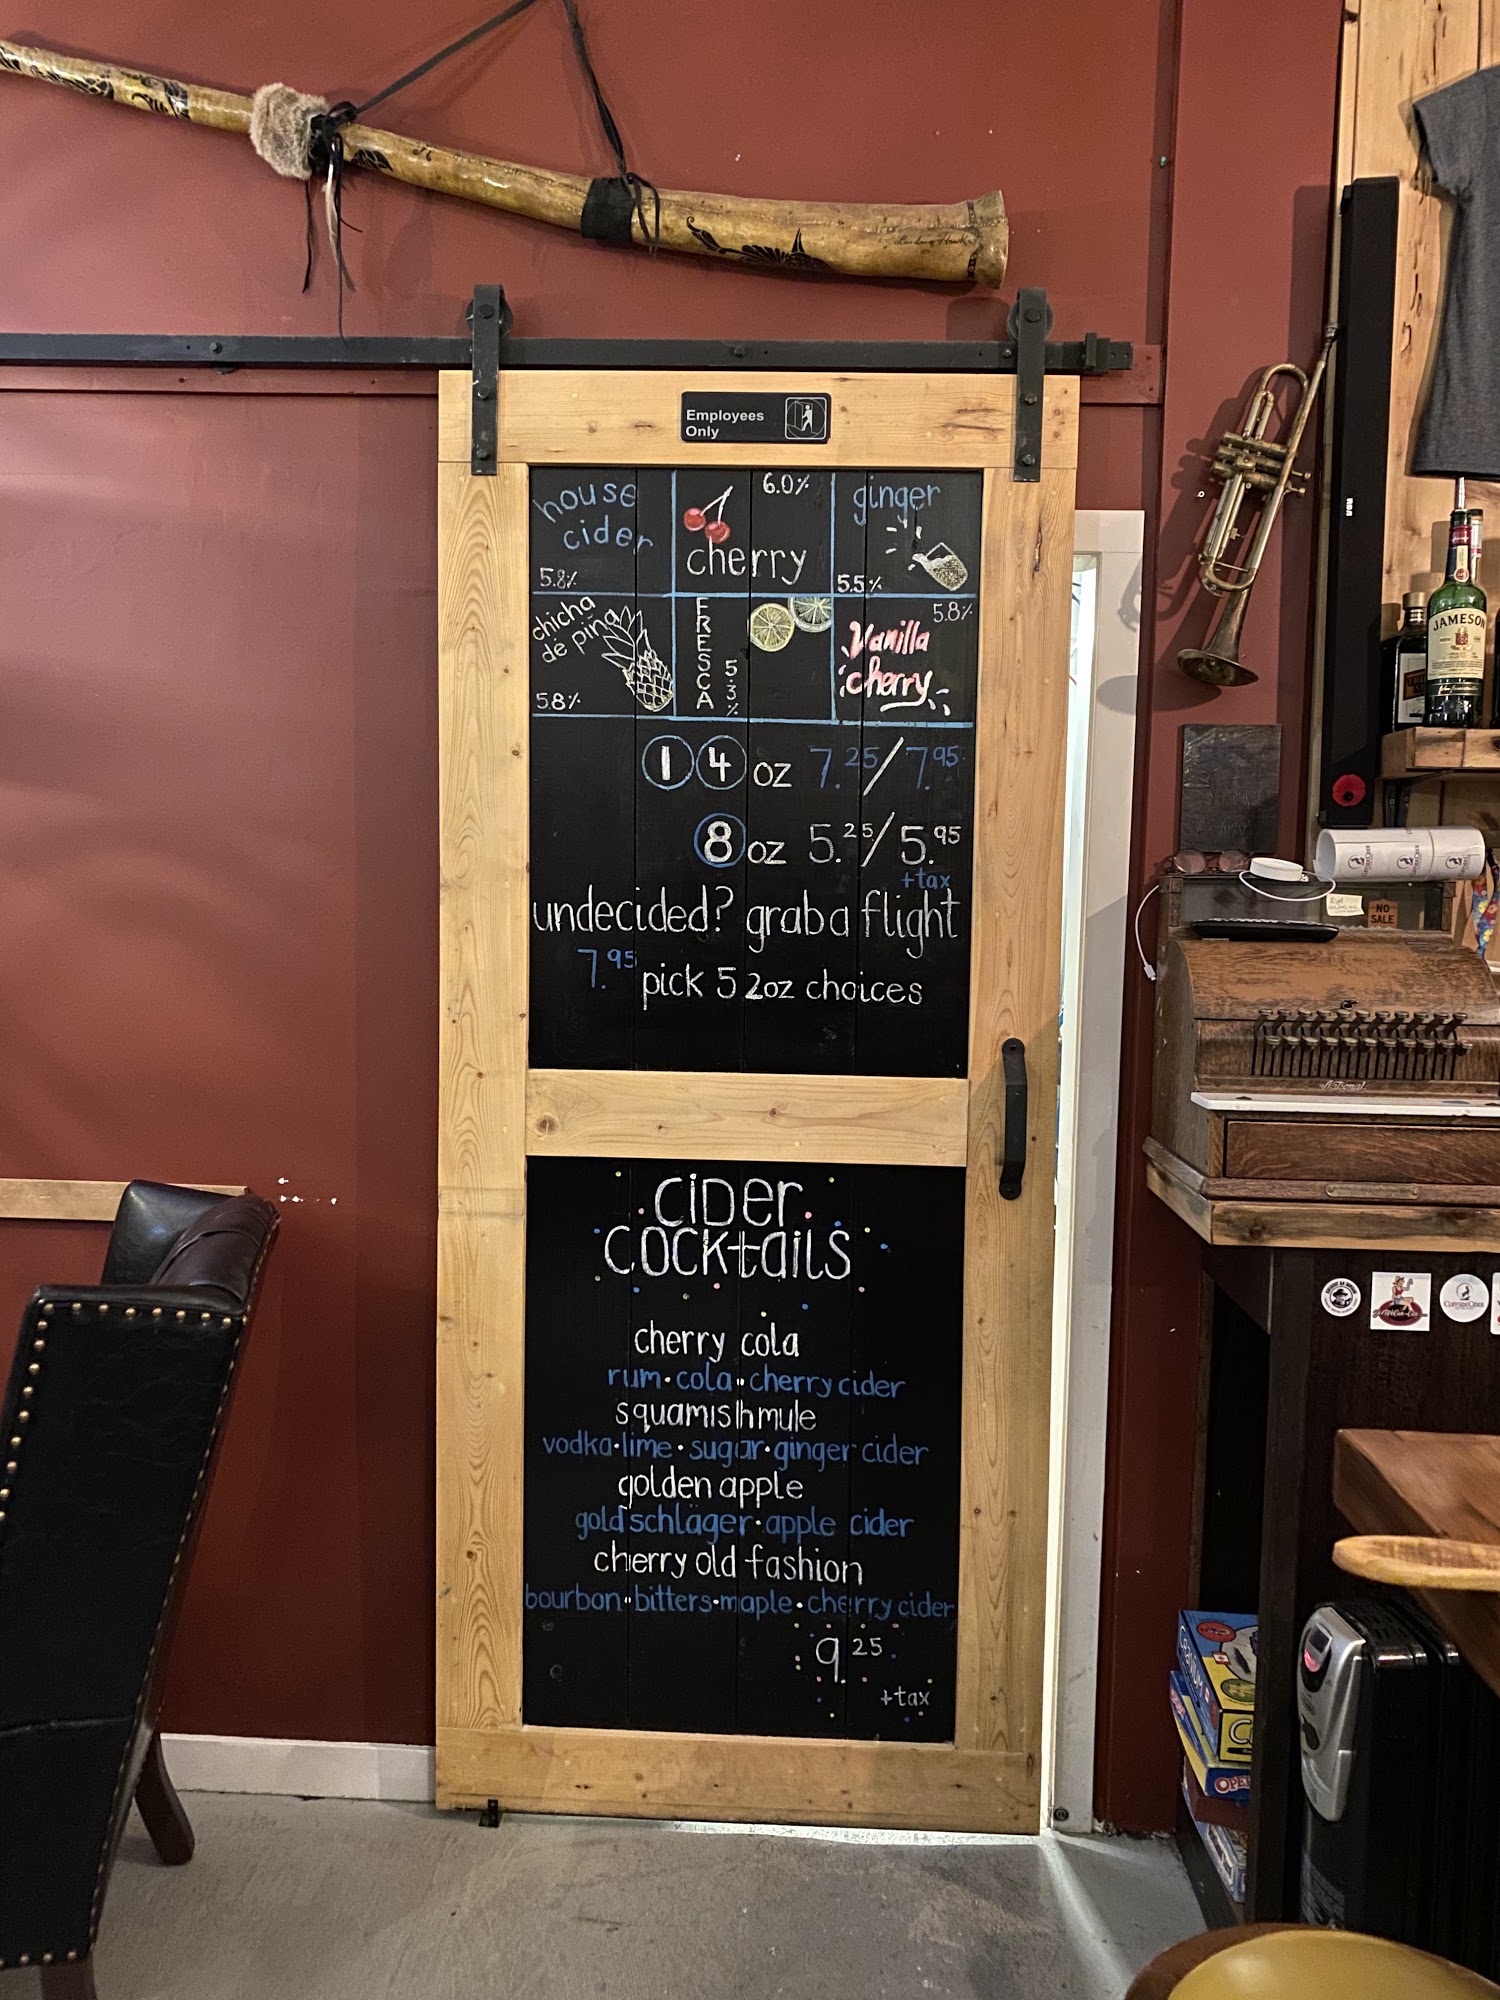 Employees
Only
house
cider
5.8%
6.0%
cherry
ginger
5.5%
chicha
de piña
5.8%
FRESCA
5.3%
5.8%
Vanilla
cherry
14 oz 7.25/7.95
8 oz 5.25/5.95
+tax
undecided? grab a flight
7.95 pick 5 2oz choices
cider
cocktails
cherry cola
rum · cola · cherry cider
squamish mule
vodka · lime · sugar · ginger cider
golden apple
goldschläger · apple cider
cherry old fashion
bourbon · bitters · maple · cherry cider
9.25
+tax
JAMESON
NO
SALE
National
CLIFFSIDE CIDER
CRANIUM